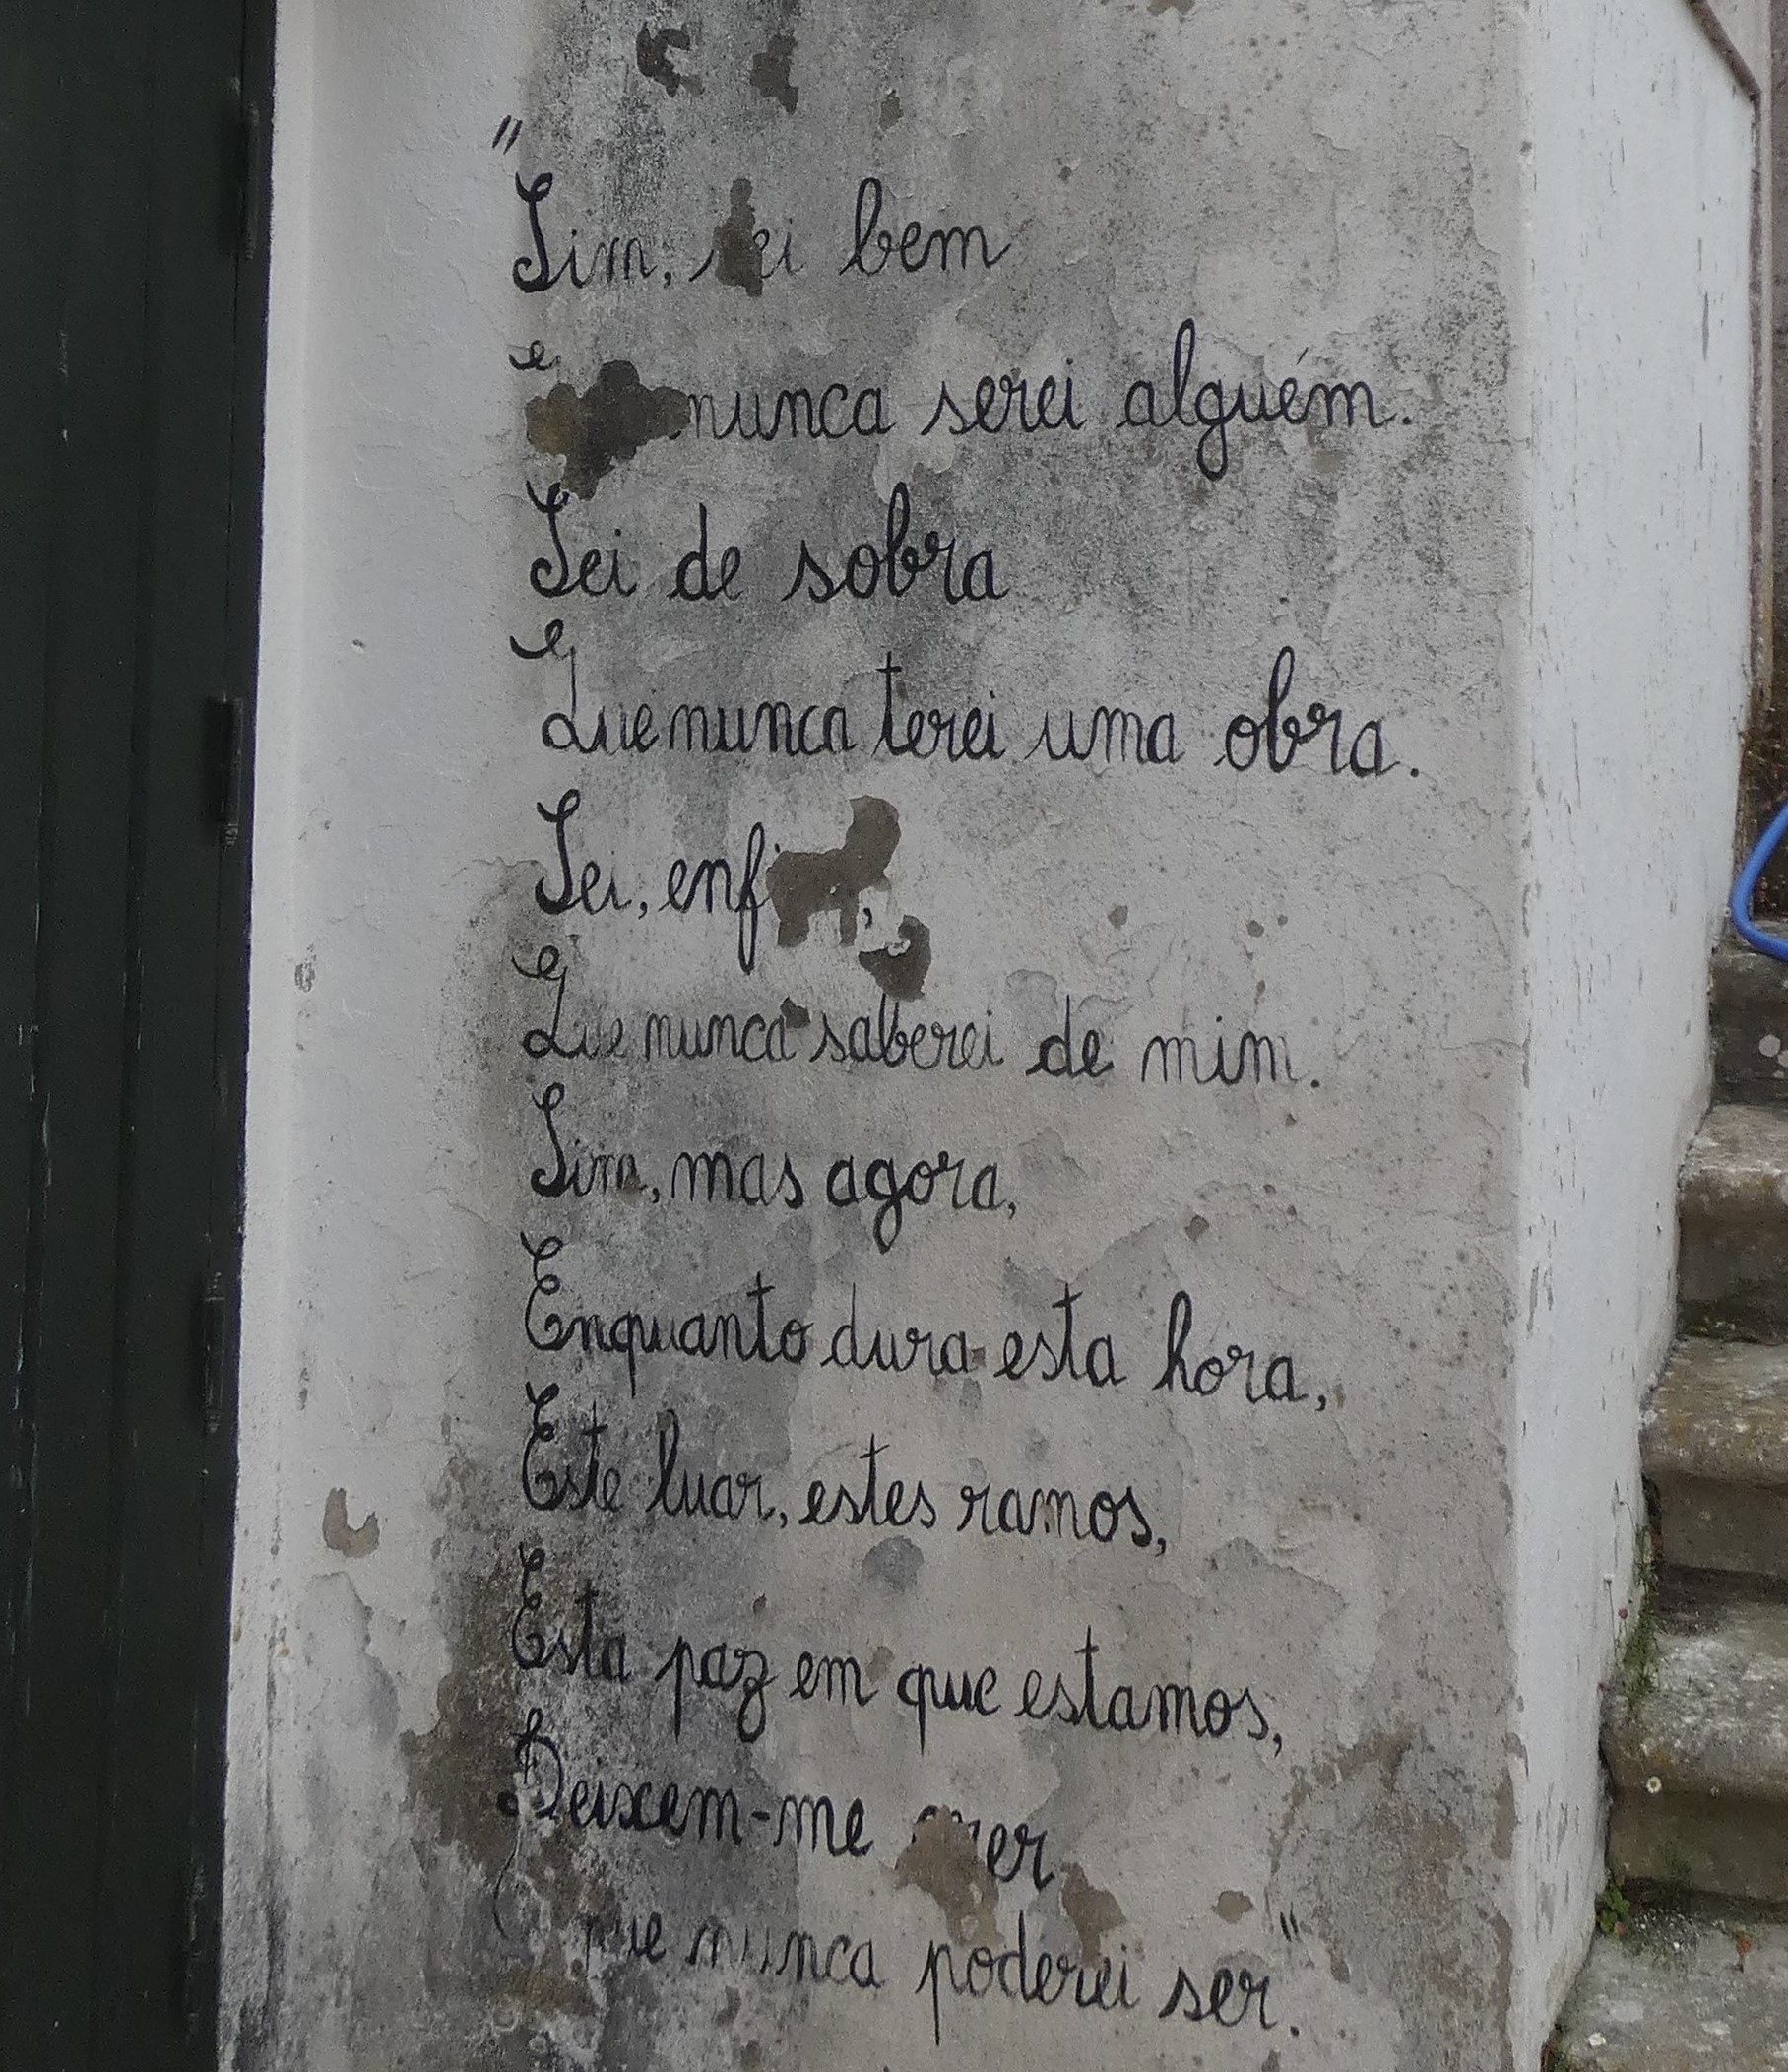 "Sim, sei bem
nunca serei alguém.
Sei de sobra
Que nunca terei uma obra.
Sei, enfim,
Que nunca saberei de mim.
Sim, mas agora,
Enquanto dura esta hora,
Este luar, estes ramos,
Esta paz em que estamos,
Deixem-me crer
que nunca poderei ser."